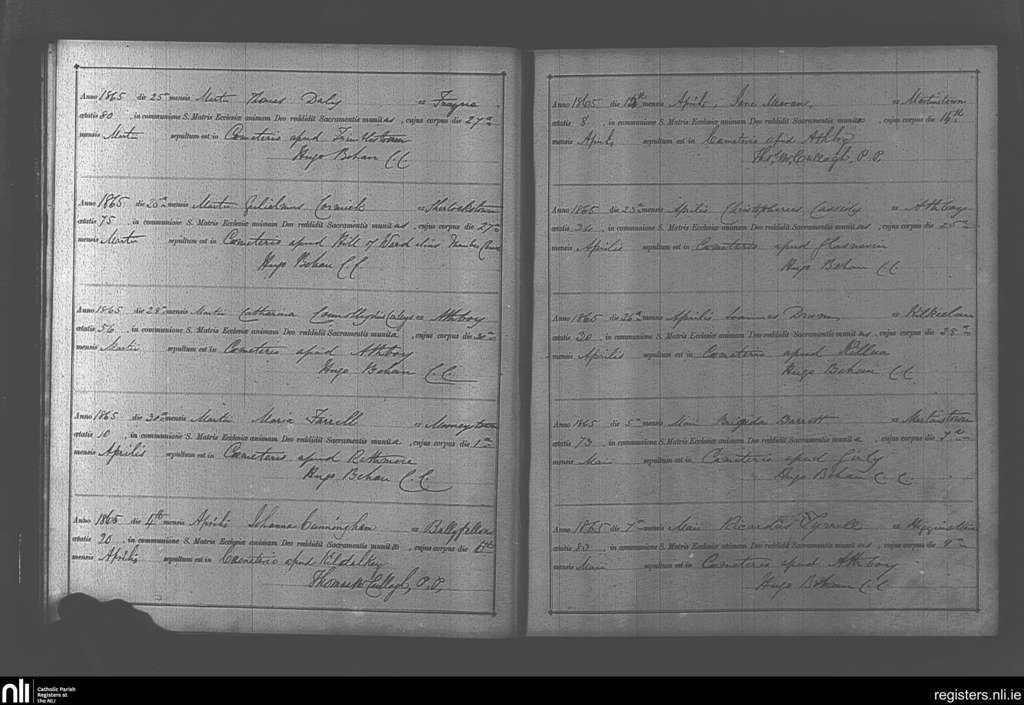 Anno 1865 die 25th mensis Martii Thomas Daly ex Frayne
ætatis 80, in communione S. Matris Ecclesiæ animam Deo reddidit Sacramentis munitus, cujus corpus die 27th
mensis Martii sepultum est in Cœmeterio apud
Hugo Behan C C
Anno 1865 die 25th mensis Martii Gulielmus Cormick ex Sherlockstown
ætatis 75, in communione S. Matris Ecclesiæ animam Deo reddidit Sacramentis munitus, cujus corpus die 27th
mensis Martii sepultum est in Cœmeterio apud Hill of Ward alias
Hugo Behan C C
Anno 1865 die 28th mensis Martii Catharina ex Athboy
ætatis 56, in communione S. Matris Ecclesiæ animam Deo reddidit Sacramentis munita, cujus corpus die 30th
mensis Martii sepultum est in Cœmeterio apud Athboy
Hugo Behan C.C.
Anno 1865 die 30th mensis Martii Maria Farrell ex Mooneystown
ætatis 10, in communione S. Matris Ecclesiæ animam Deo reddidit Sacramentis munita, cujus corpus die 1
mensis Aprilis sepultum est in Cœmeterio apud Rathmore
Hugo Behan C.C.
Anno 1865 die 4th mensis Aprilis Johanna Cunningham ex Ballyfallon
ætatis 20, in communione S. Matris Ecclesiæ animam Deo reddidit Sacramentis munita, cujus corpus die 6th
mensis Aprilis sepultum est in Cœmeterio apud Kildalkey
Thomas McCullagh, P.P.
Anno 1865 die mensis Aprilis Jane Moran, ex Martinstown
ætatis 8, in communione S. Matris Ecclesiæ animam Deo reddidit Sacramentis munita, cujus corpus die 16th
mensis Aprilis sepultum est in Cœmeterio apud Athboy
Thos. McCullagh, P.P.
Anno 1865 die 23 mensis Aprilis Christopherus Cassidy ex Athboy
ætatis, in communione S. Matris Ecclesiæ animam Deo reddidit Sacramentis munitus, cujus corpus die 25th
mensis Aprilis sepultum est in Cœmeterio apud Glasnevin
Hugo Behan C.C.
Anno 1865 die 26th mensis Aprilis Joannes ex
ætatis 30, in communione S. Matris Ecclesiæ animam Deo reddidit Sacramentis munitus, cujus corpus die 28th
mensis Aprilis sepultum est in Cœmeterio apud Killua
Hugo Behan C.C.
Anno 1865 die 5 mensis Maii Brigida Barrett ex Martinstown
ætatis 73, in communione S. Matris Ecclesiæ animam Deo reddidit Sacramentis munita, cujus corpus die
mensis Maii sepultum est in Cœmeterio apud
Hugo Behan C.C.
Anno 1865 die 7 mensis Maii Ricardus Tyrrell ex Higginstown
ætatis 80, in communione S. Matris Ecclesiæ animam Deo reddidit Sacramentis munitus, cujus corpus die 9th
mensis Maii sepultum est in Cœmeterio apud Athboy
Hugo Behan C C
nli Catholic Parish Registers at the NLI
registers.nli.ie